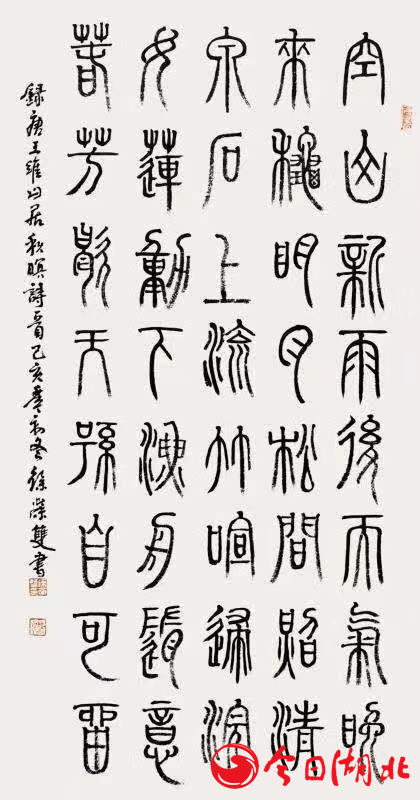 空山新雨後天氣晚
來秋明月松間照清
泉石上流竹喧歸浣
女蓮動下漁舟隨意
春芳歇王孫自可留
録唐王維山居秋暝詩一首己亥年初冬徐榮雙書
今日湖北